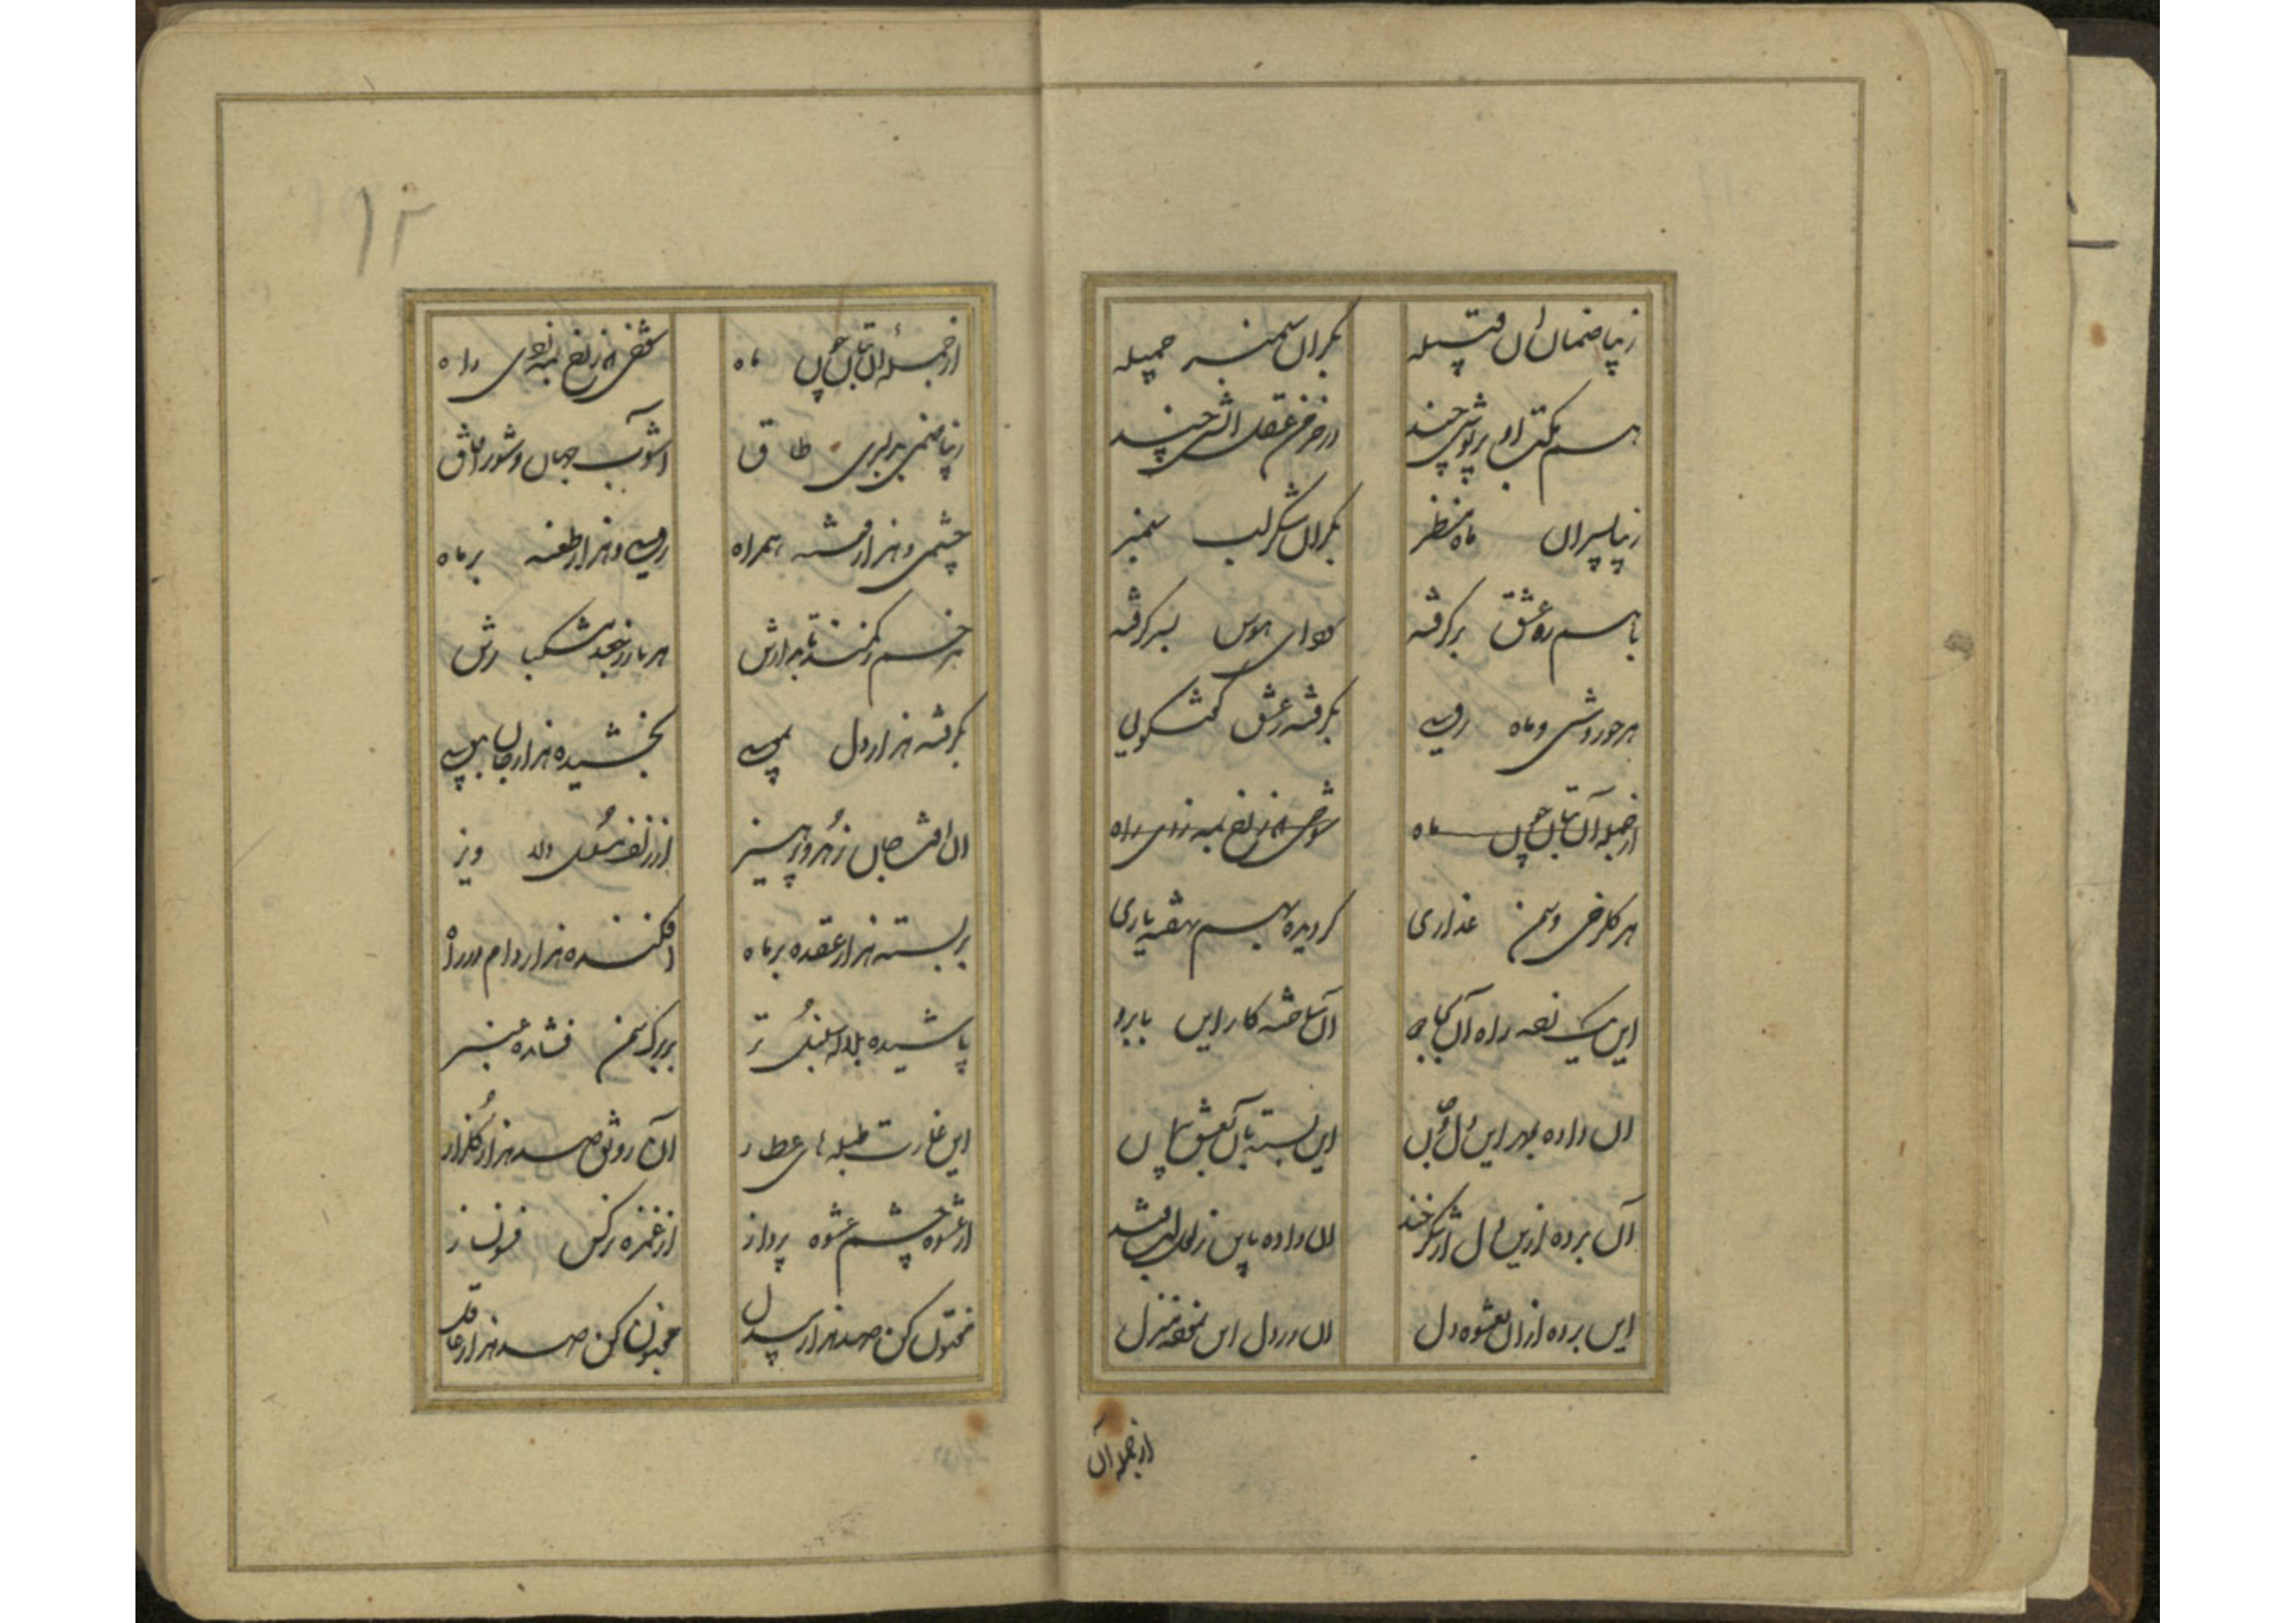 زیبا صنمان آن قبیله
بکران سمنبر جمیله
هم مکتب او پریوشی چند
در خرمن عقل آتشی چند
زیبا پسران ماه منظر
بکران شکر لب سمنبر
با هم ره عشق برگرفته
سودای هوس بسر گرفته
هر حوروشی و ماه رویی
بگرفته ز عشق گفتگویی
از جمله آن بتان چون ماه
شوخی ز رخ همه زدی راه
هر گلرخی و سمن عذاری
گردیده بهم نهفته یاری
این یک زده راه آن بگیسو
آن ساخته کار این بابرو
آن داده بمهر این دل و جان
این بسته بآن بعشق پیمان
آن برده ازین دل از شکرخند
آن داده باین ز لعل لب قند
این برده از آن بعشوه دل
آن در دل این نهفته منزل
از جمله آن
۱۲
از جمله آن بتان چون ماه
شوخی ز رخ همه زدی راه
زیبا صنمی بدلبری طاق
آشوب جهان و شور آفاق
چشمی و هزار فتنه همراه
رویی و هزار طعنه بر ماه
هر خم ز کمند تابدارش
هر تار ز جعد مشکبارش
بگرفته هزار دل بمویی
بخشیده هزار جان ببویی
آن آفت جان زهد و پرهیز
از زلف دلاویز
بر بسته هزار عقده بر ماه
افکنده هزار دام در راه
پاشیده بلاله سنبل تر
بر برگ سمن فشانده عنبر
این غارت طبلهای عطار
آن رونق صد هزار گلزار
از عشوه چشم عشوه پرداز
از غمزه نرگس فسونساز
مفتون کن صد هزار بیدل
مجنون کن صد هزار عاقل